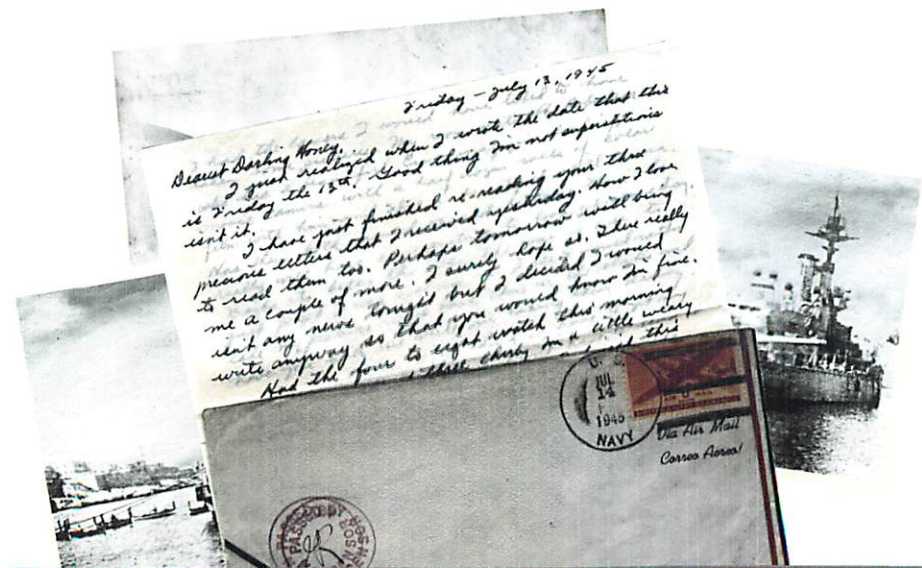 Friday – July 13, 1945
Dearest Darling Honey,
I just realized when I wrote the date that this
is Friday the 13th. Good thing I'm not superstitious
isn't it.
I have just finished re-reading your three
precious letters that I received yesterday. How I love
to read them too. Perhaps tomorrow will bring
me a couple of more. I surely hope so. There really
isn't any news tonight but I decided I would
write anyway so that you would know I'm fine.
Had the four to eight watch this morning
three thirty I'm a little weary
this
U. S.
JUL
14
1945
NAVY
AIR MAIL
Via Air Mail
Correo Aereo!
PASSED BY